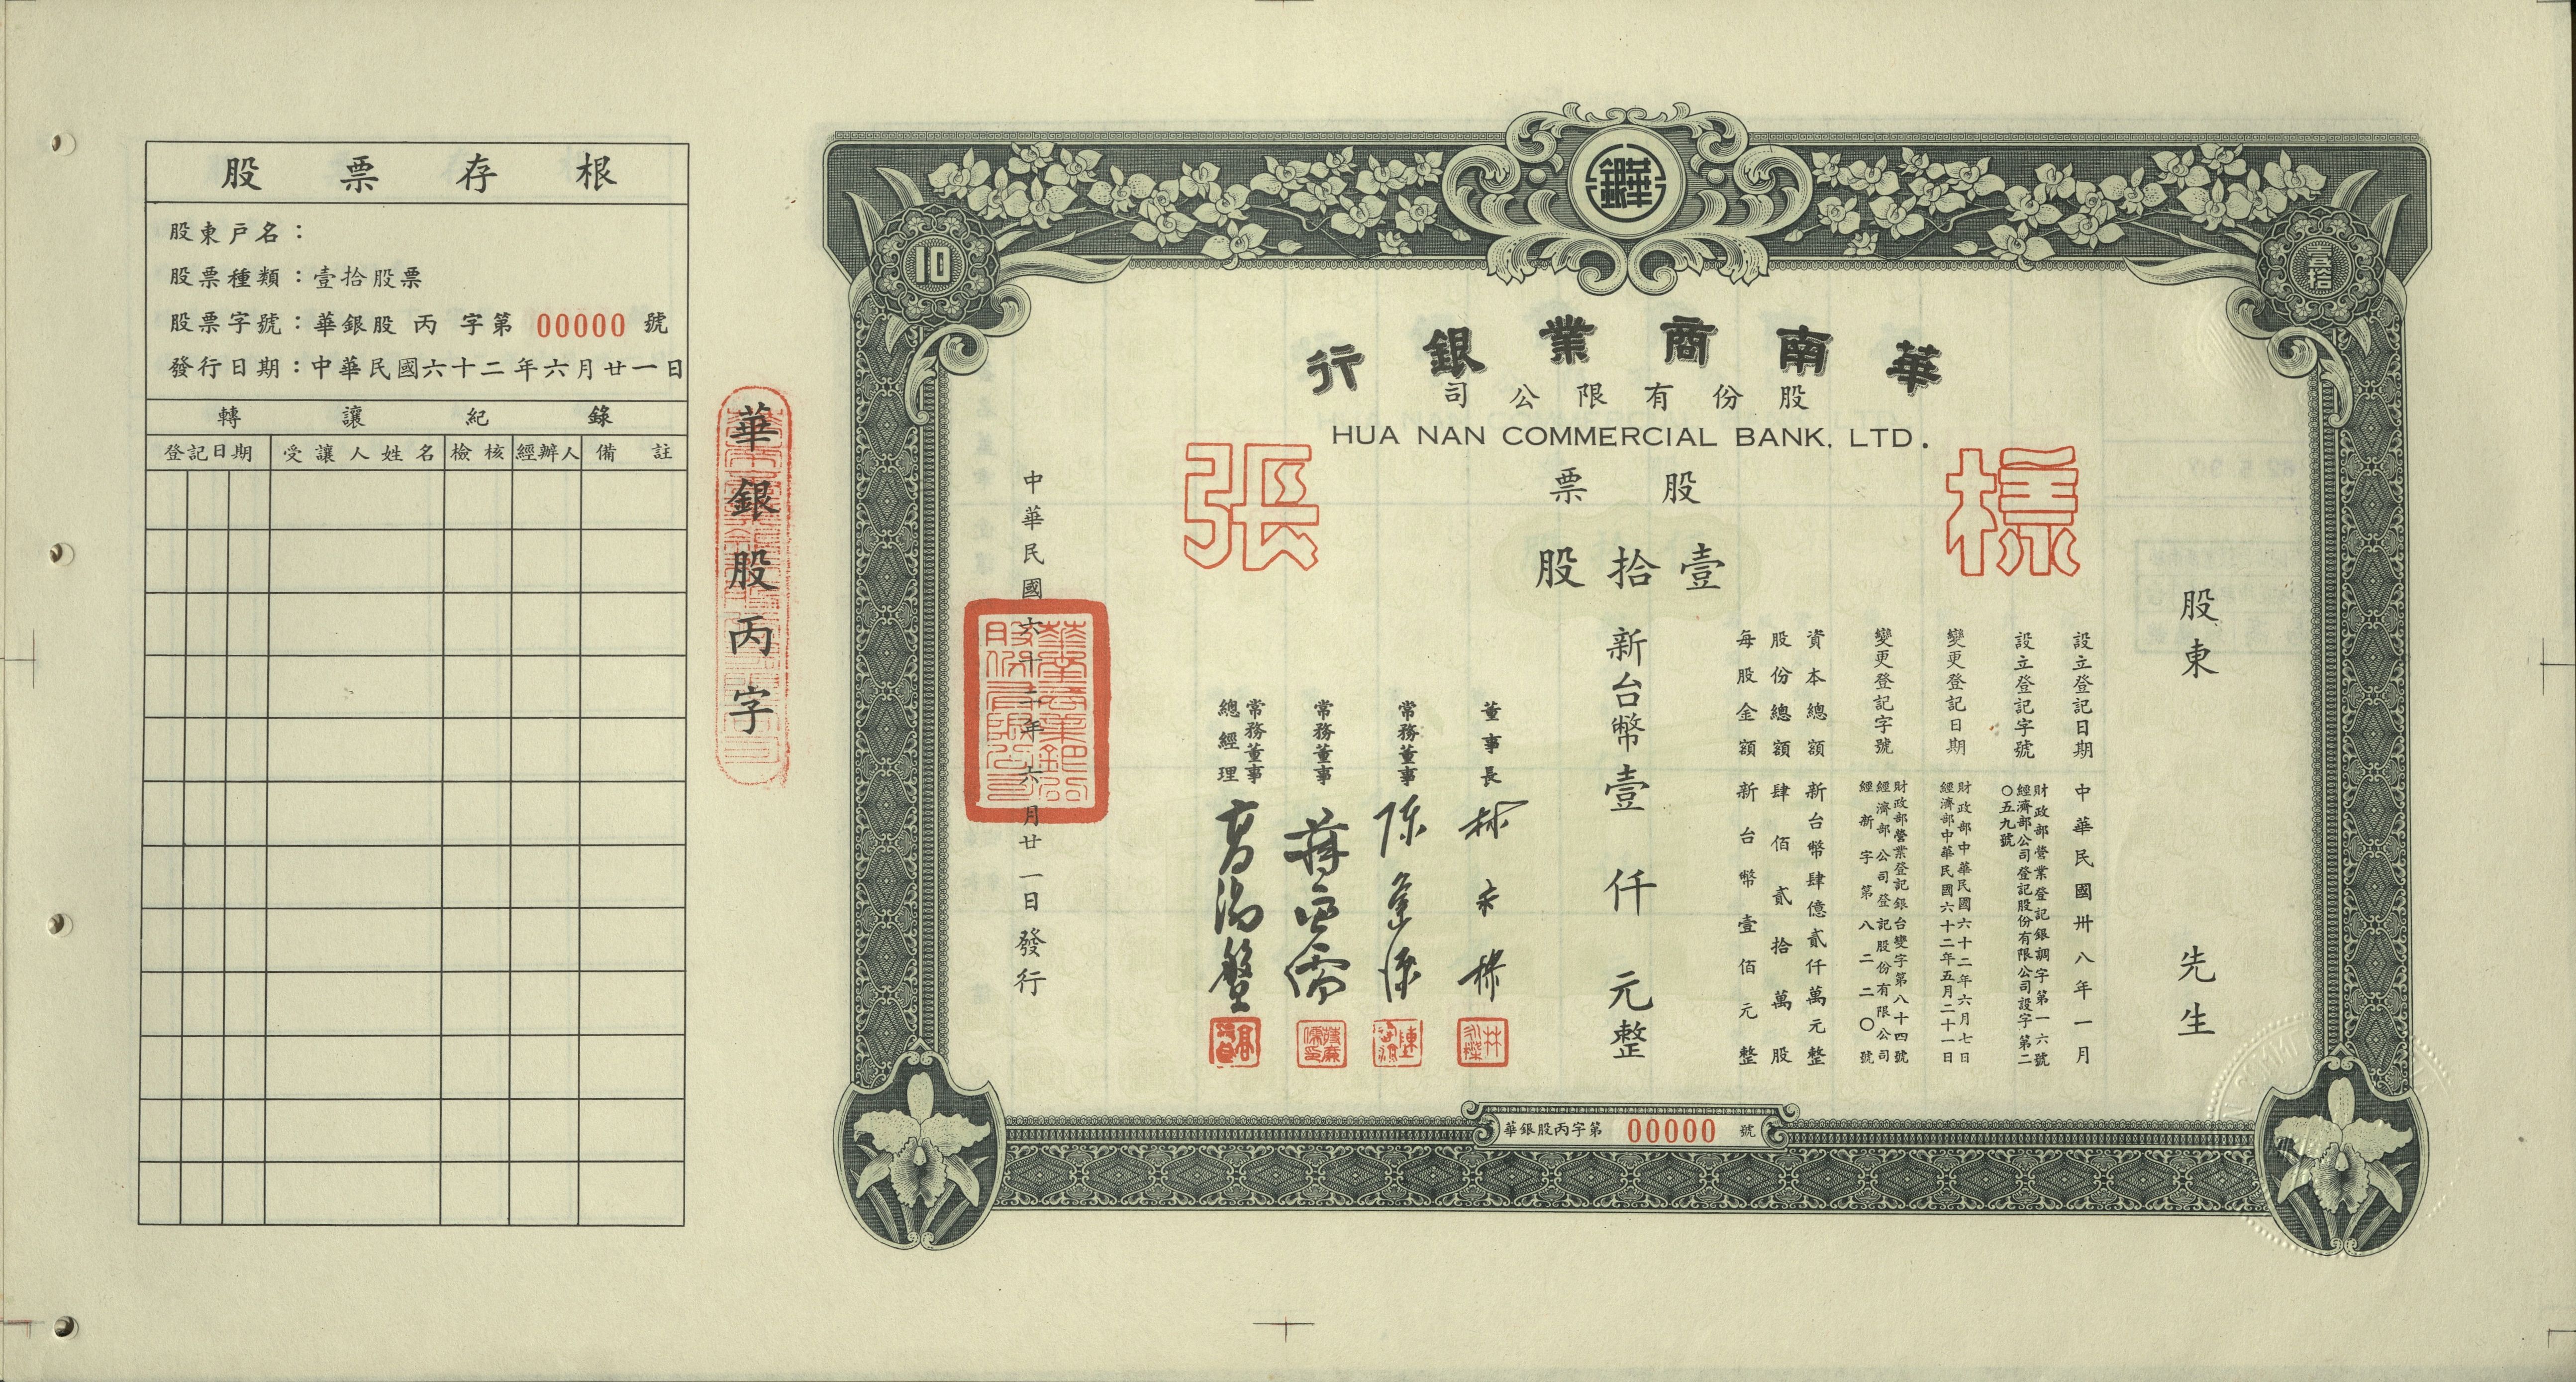 股票存根
股東戶名：
股票種類：壹拾股票
股票字號：華銀股 丙 字第 00000 號
發行日期：中華民國六十二年六月廿一日
轉讓紀錄
登記日期 受讓人姓名 檢核 經辦人 備註
華銀股丙字
華銀
10
壹拾
華南商業銀行
股份有限公司
HUA NAN COMMERCIAL BANK, LTD.
樣張
股票
壹拾股
股東 先生
設立登記日期 中華民國卅八年一月
設立登記字號 財政部營業登記銀調字第一六號
經濟部公司登記股份有限公司設字第二
〇五九號
變更登記日期 財政部中華民國六十二年六月七日
經濟部中華民國六十二年五月二十一日
變更登記字號 財政部營業登記銀台變字第八十四號
經濟部公司登記股份有限公司
經新字第八二二〇號
資本總額 新台幣肆億貳仟萬元整
股份總額 肆佰貳拾萬股
每股金額 新台幣壹佰元整
新台幣壹仟元整
董事長
常務董事
常務董事
常務董事
總經理
中華民國六十二年六月廿一日發行
華南商業銀行股份有限公司
華銀股丙字第 00000 號